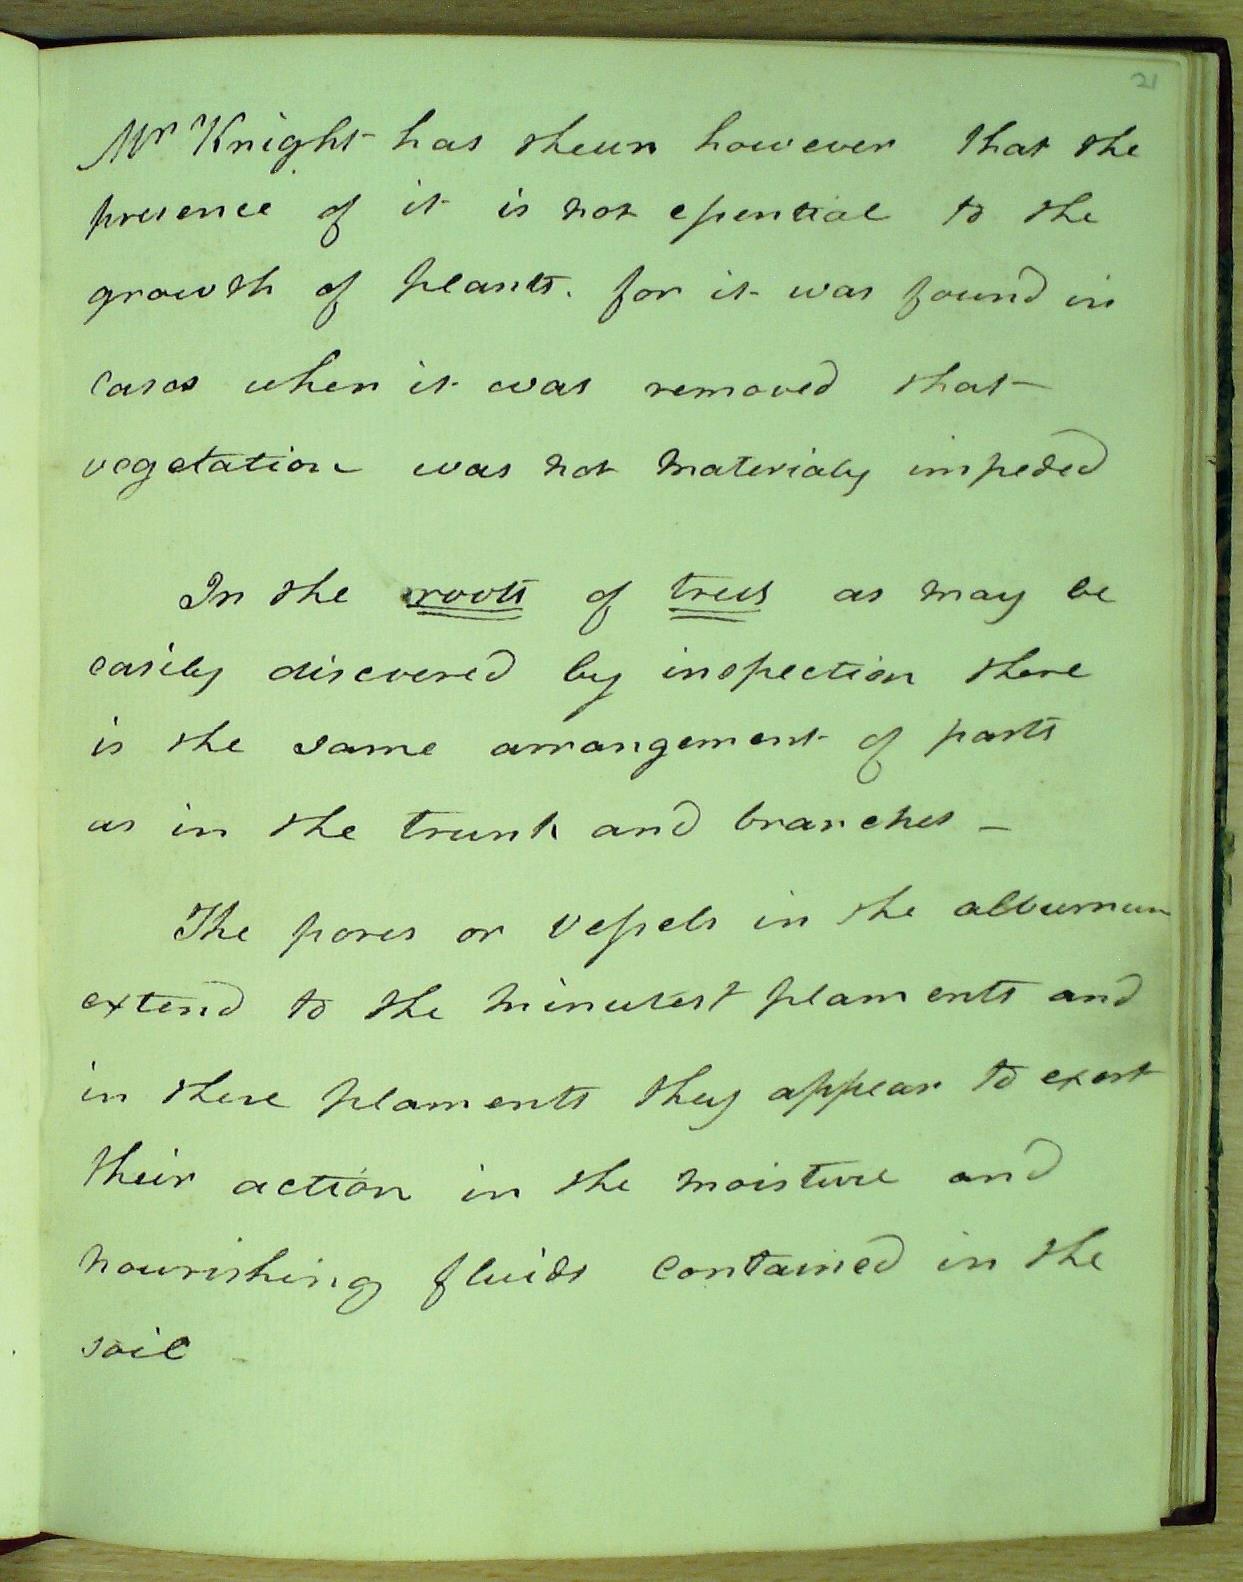 21
Mr Knight has shewn however that the
presence of it is not essential to the
growth of plants. for it was found in
cases when it was removed that
vegetation was not materialy impeded
In the roots of trees as may be
easily discovered by inspection there
is the same arrangement of parts
as in the trunk and branches –
The pores or vessels in the alburnum
extend to the minutest filaments and
in these filaments they appear to exert
their action in the moisture and
nourishing fluids contained in the
soil –